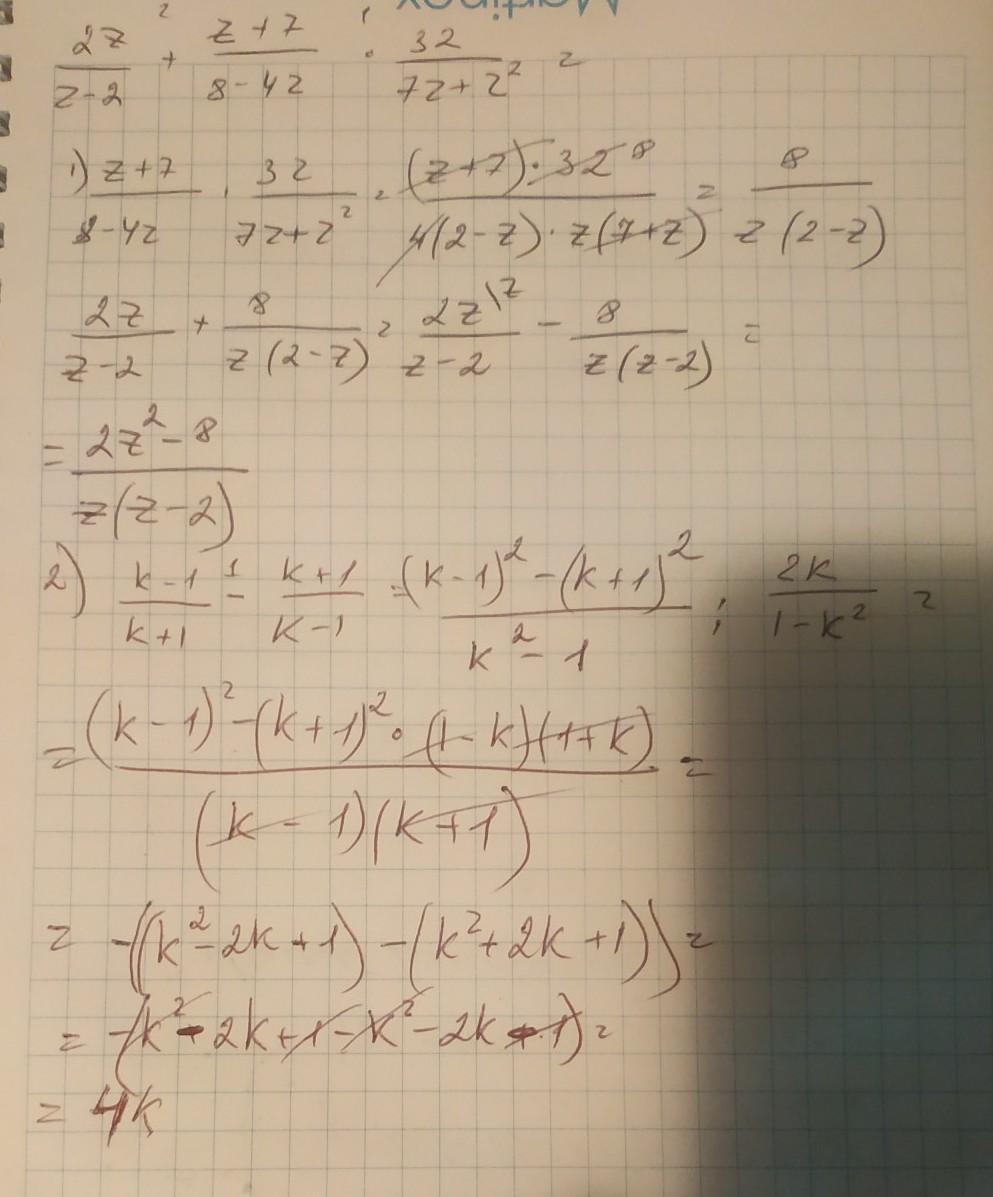 2z/(z-2) + (z+7)/(8-4z) · 32/(7z+z²) =
1) (z+7)/(8-4z) · 32/(7z+z²) = (z+7)·32 8/(4(2-z)·z(7+z)) = 8/(z(2-z))
2z/(z-2) + 8/(z(2-z)) = 2z\z/(z-2) - 8/(z(z-2)) =
= (2z²-8)/(z(z-2))
2) (k-1)/(k+1) - (k+1)/(k-1) = ((k-1)²-(k+1)²)/(k²-1) : 2k/(1-k²) =
= ((k-1)²-(k+1)²·(1-k)(1+k))/((k-1)(k+1)) =
= -((k²-2k+1)-(k²+2k+1)) =
= -(k²-2k+1-k²-2k-1) =
= 4k